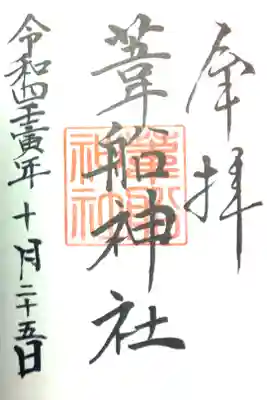 奉拝
葦船神社
令和四壬寅年十月二十五日